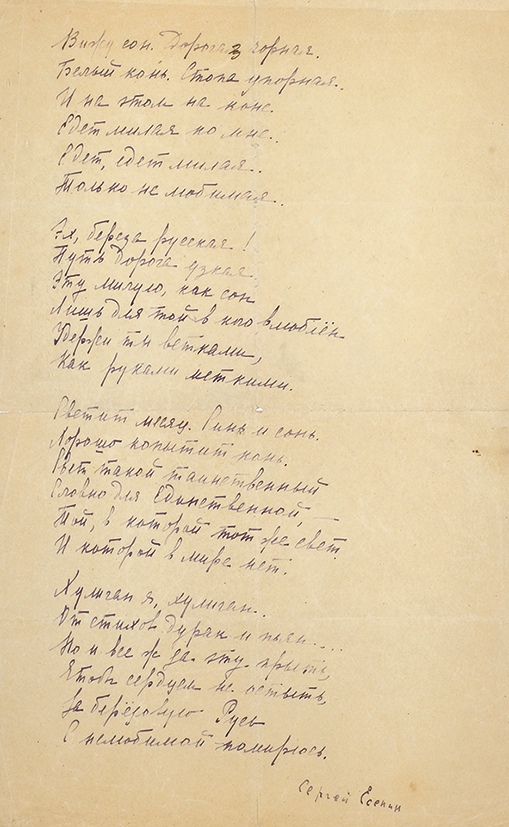 Вижу сон. Дорога черная.
Белый конь. Стопа упорная..
И на этом на коне.
Едет милая ко мне..
Едет, едет милая..
Только не любимая..
Эх, береза русская!
Путь дорога узкая.
Эту милую, как сон
Лишь для той в кого влюблён
Удержи ты ветками,
Как руками меткими.
Светит месяц. Синь и сонь.
Хорошо копытит конь.
Свет такой таинственный
Словно для Единственной, —
Той, в которой тот же свет
И которой в мире нет.
Хулиган я, хулиган..
От стихов дурак и пьян....
Но и все ж за эту прыть,
Чтобы сердцем не остыть,
За берёзовую Русь
С нелюбимой помирюсь.
Сергей Есенин